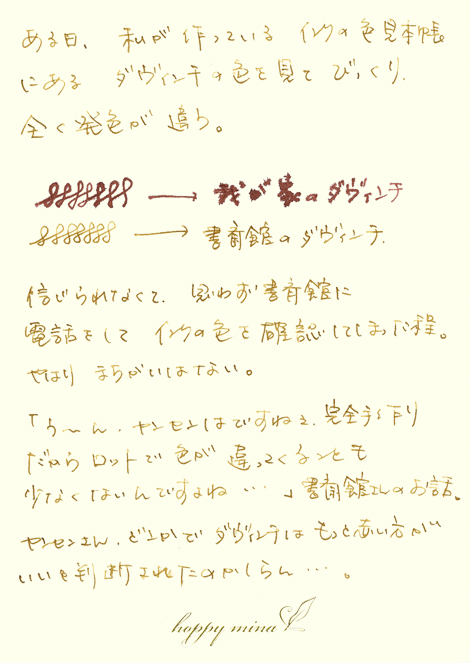 ある日、私が作っている インクの色見本帳
にある ダヴィンチの色を見て びっくり.
全く発色が違う。
我が家のダヴィンチ
書斎館のダヴィンチ.
信じられなくて、思わず書斎館に
電話をして インクの色を確認してしまった程。
やはり まちがいはない。
「う〜ん、ヤンセンはですねえ、完全手作り
だから ロットで色が違ってくることも
少なくはないんですよね …」書斎館さんのお話。
ヤンセンさん、どこかでダヴィンチはもっと赤い方が
いいと判断されたのかしらん…。
hoppy mina